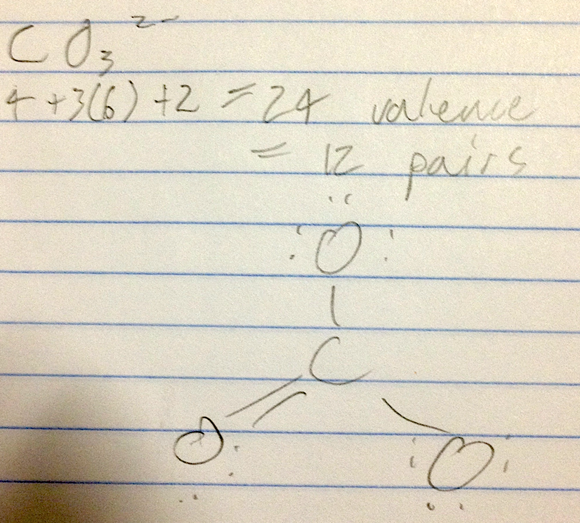 CO₃²⁻
4 + 3(6) + 2 = 24 valence
= 12 pairs
O
C
O O